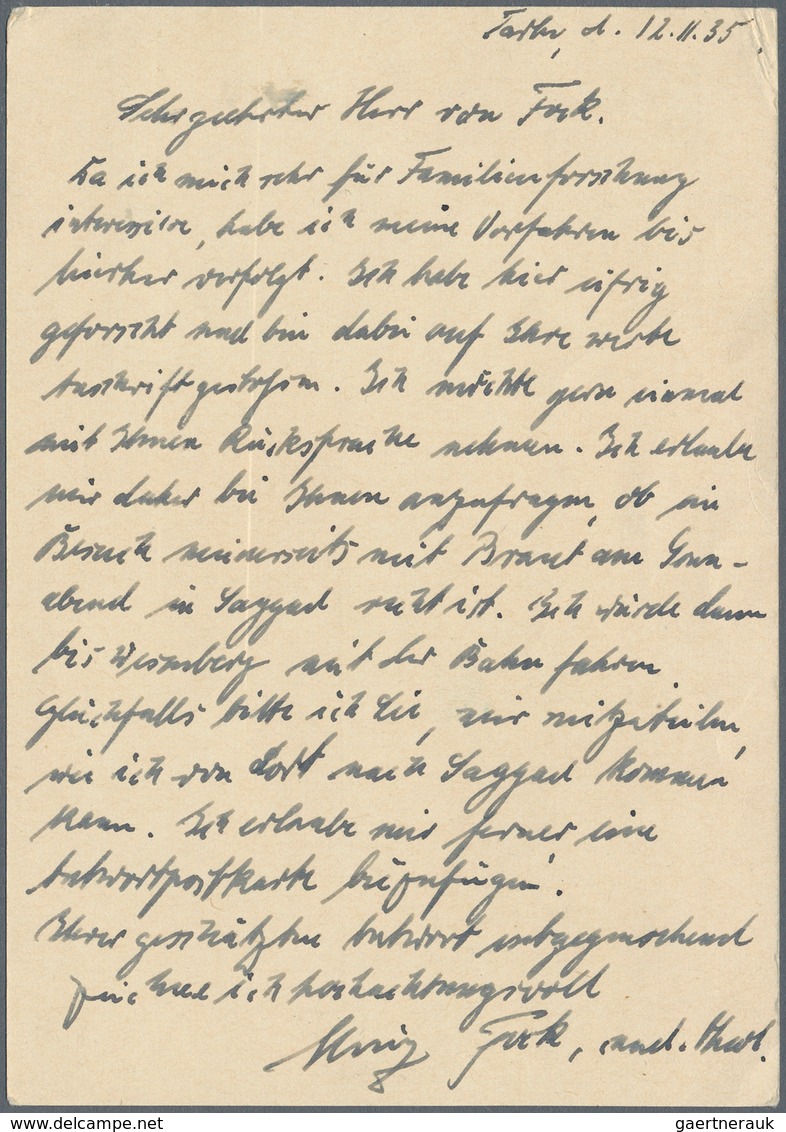 d. 12.11.35.
Sehr geehrter Herr von Fock.
Da ich mich sehr für Familienforschung
interessire, habe ich meine Vorfahren bis
hierher verfolgt. Ich habe hier eifrig
geforscht und bin dabei auf Ihre werte
Anschrift gestoßen. Ich möchte gern einmal
mit Ihnen Rücksprache nehmen. Ich erlaube
mir daher bei Ihnen anzufragen, ob ein
Besuch meinerseits mit Braut am Sonn-
abend in Saggad recht ist. Ich würde dann
bis Wesenberg mit der Bahn fahren.
Gleichfalls bitte ich Sie, mir mitzuteilen,
wie ich von dort nach Saggad kommen
kann. Ich erlaube mir ferner eine
Antwortpostkarte beizufügen.
Ihrer geschätzten Antwort entgegensehend
zeichne ich hochachtungsvoll
Fock, cand.
delcampe.net
gaertnerauk